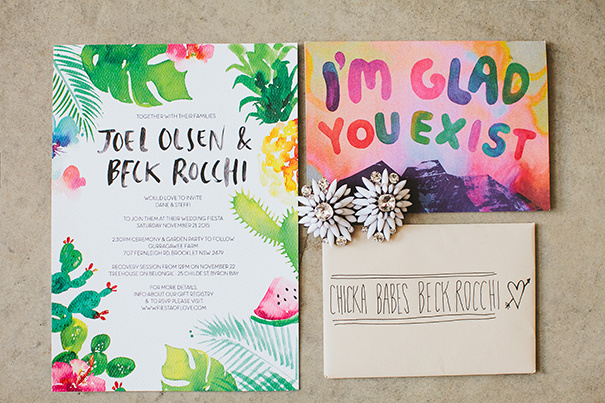 TOGETHER WITH THEIR FAMILIES
JOEL OLSEN &
BECK ROCCHI
WOULD LOVE TO INVITE
DANE & STEFFI
TO JOIN THEM AT THEIR WEDDING FIESTA
SATURDAY NOVEMBER 21 2015
2:30PM CEREMONY & GARDEN PARTY TO FOLLOW
OURRAGAWEE FARM
707 FERNLEIGH RD, BROOKLET NSW 2479
RECOVERY SESSION FROM 12PM ON NOVEMBER 22
TREEHOUSE ON BELONGIL - 25 CHILDE ST, BYRON BAY
FOR MORE DETAILS,
INFO ABOUT OUR GIFT REGISTRY
& TO RSVP PLEASE VISIT:
WWW.FIESTAOFLOVE.COM
I'M GLAD
YOU EXIST
CHICKA BABES BECK ROCCHI